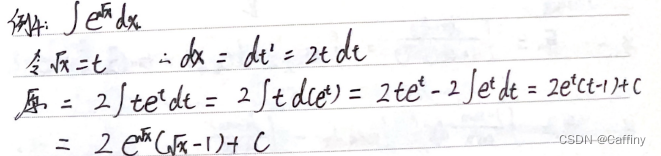 例4: ∫e^{√x}dx.
令√x=t ∴dx = dt' = 2t dt
原 = 2∫te^t dt = 2∫t d(e^t) = 2te^t - 2∫e^t dt = 2e^t(t-1)+C
= 2e^{√x}(√x-1)+C
CSDN @Caffiny